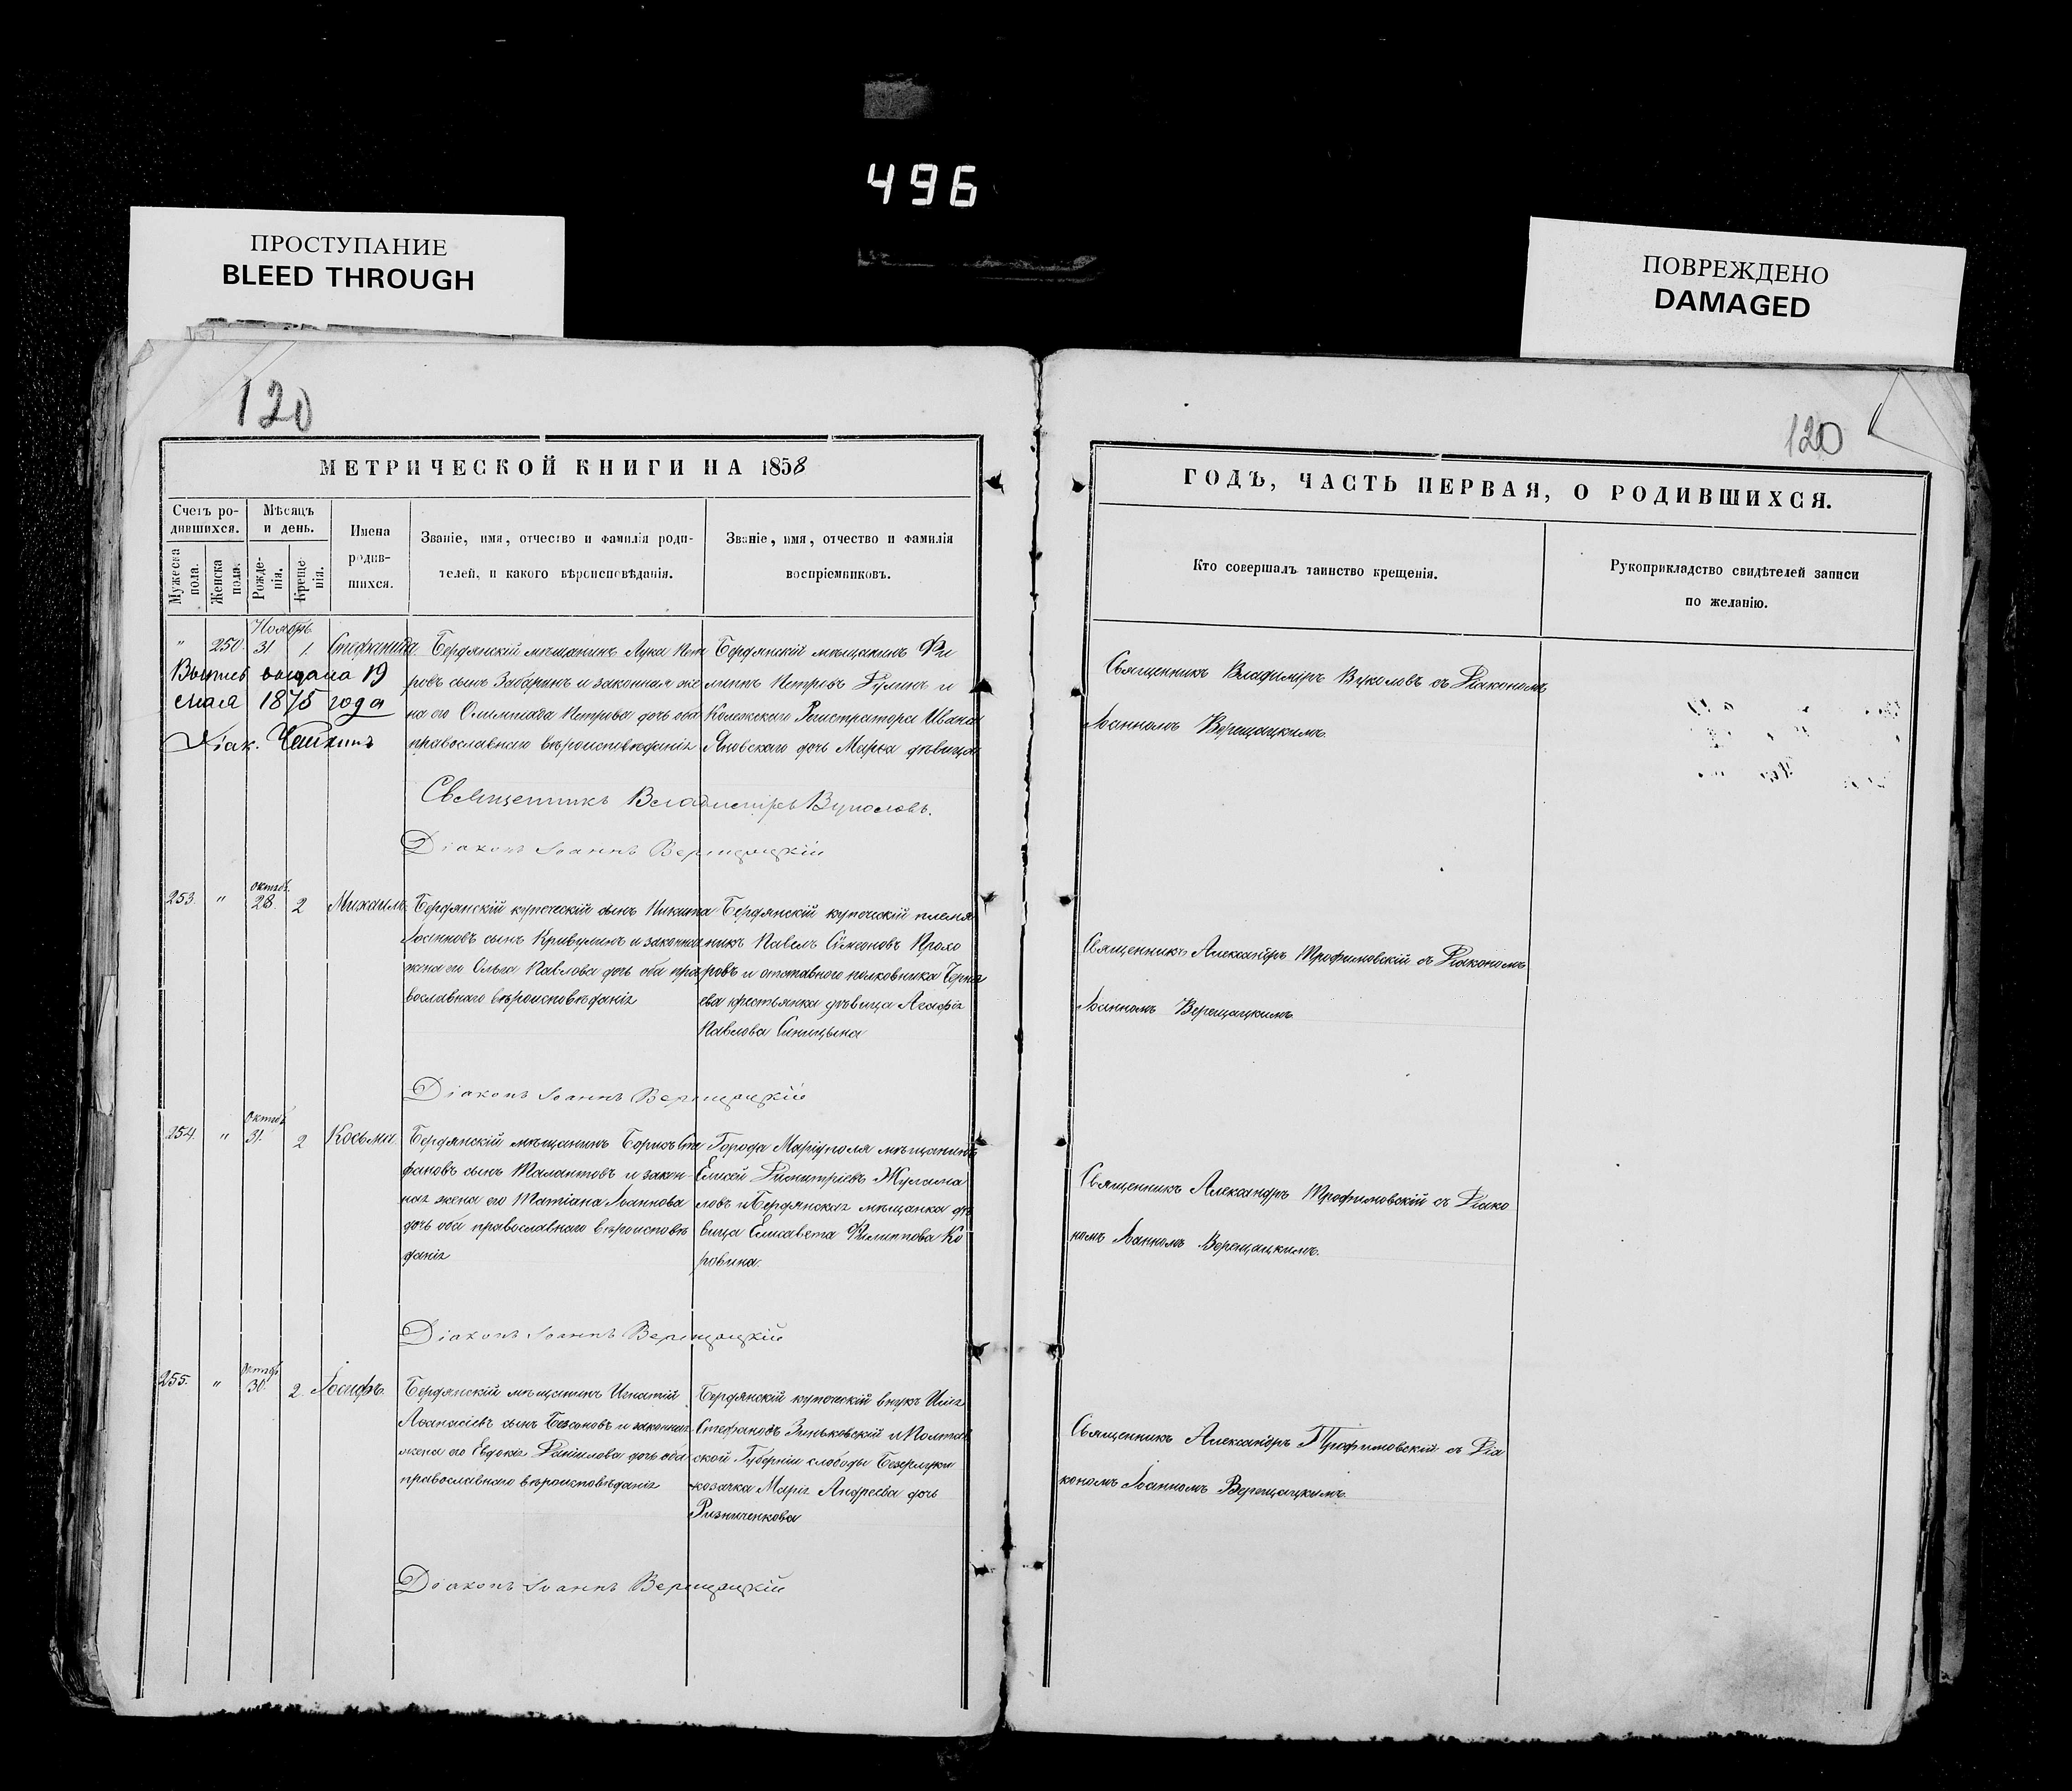 496
ПРОСТУПАНИЕ
BLEED THROUGH
ПОВРЕЖДЕНО
DAMAGED
120
120
МЕТРИЧЕСКОЙ КНИГИ НА 1858
Счетъ ро-
дившихся.
Мужеска
пола.
Женска
пола.
Мѣсяцъ
и день.
Рожде-
нія.
Креще-
нія.
Имена
родив-
шихся.
Званіе, имя, отчество и фамилія роди-
телей, и какого вѣроисповѣданія.
Званіе, имя, отчество и фамилія
воспріемниковъ.
ГОДЪ, ЧАСТЬ ПЕРВАЯ, О РОДИВШИХСЯ.
Кто совершалъ таинство крещенія.
Рукоприкладство свидѣтелей записи
по желанію.
Ноябрь
" 250. 31 1. Стефанида
Выпись выдана 19
мая 1875 года
Діак. Чайкинъ
Бердянскій мѣщанинъ Лука Пет
ровъ сынъ Забаринъ и законная же
на его Олимпіада Петрова дочь оба
православнаго вѣроисповѣданія
Бердянскій мѣщанинъ Фи
липпъ Петровъ и
Коллежскаго Регистратора Ивана
Яновскаго дочь Марѳа дѣвица
Священникъ Владиміръ Вуколовъ съ Діакономъ
Іоанномъ Верещацкимъ.
Священникъ Владиміръ Вуколовъ.
Діаконъ Іоаннъ Верещацкій
октяб.
253. " 28. 2 Михаилъ
Бердянскій купеческій сынъ Никита
Іоанновъ сынъ Кривулинъ и законная
жена его Ольга Павлова дочь оба пра
вославнаго вѣроисповѣданія
Бердянскій купеческій племя
никъ Павелъ Сѵмеоновъ Прохо
ровъ и отставнаго полковника Черня
ева крестьянка дѣвица Агафія
Павлова Синицына
Священникъ Александръ Трофимовскій съ Діакономъ
Іоанномъ Верещацкимъ
Діаконъ Іоаннъ Верещацкій
Октяб.
254. " 31. 2 Косьма.
Бердянскій мѣщанинъ Борисъ Сте
фановъ сынъ Талантовъ и закон-
ная жена его Татіана Іоаннова
дочь оба православнаго вѣроисповѣ
данія
Города Маріуполя мѣщанинъ
Елисей Димитріевъ
ловъ и Бердянская мѣщанка дѣ
вица Елисавета Филиппова Ко
ровина.
Священникъ Александръ Трофимовскій съ Діако
номъ Іоанномъ Верещацкимъ.
Діаконъ Іоаннъ Верещацкій
Октяб.
255. " 30. 2 Іосифъ.
Бердянскій мѣщанинъ Игнатій
Аѳанасіевъ сынъ Безсоновъ и законная
жена его Евдокія Даніилова дочь оба
православнаго вѣроисповѣданія
Бердянскій купеческій внукъ Илія
Стефановъ Зиньковскій и Полтав
ской Губерніи слободы
козачка Марія Андреева дочь
Ризниченкова
Священникъ Александръ Трофимовскій съ Діа
кономъ Іоанномъ Верещацкимъ.
Діаконъ Іоаннъ Верещацкій